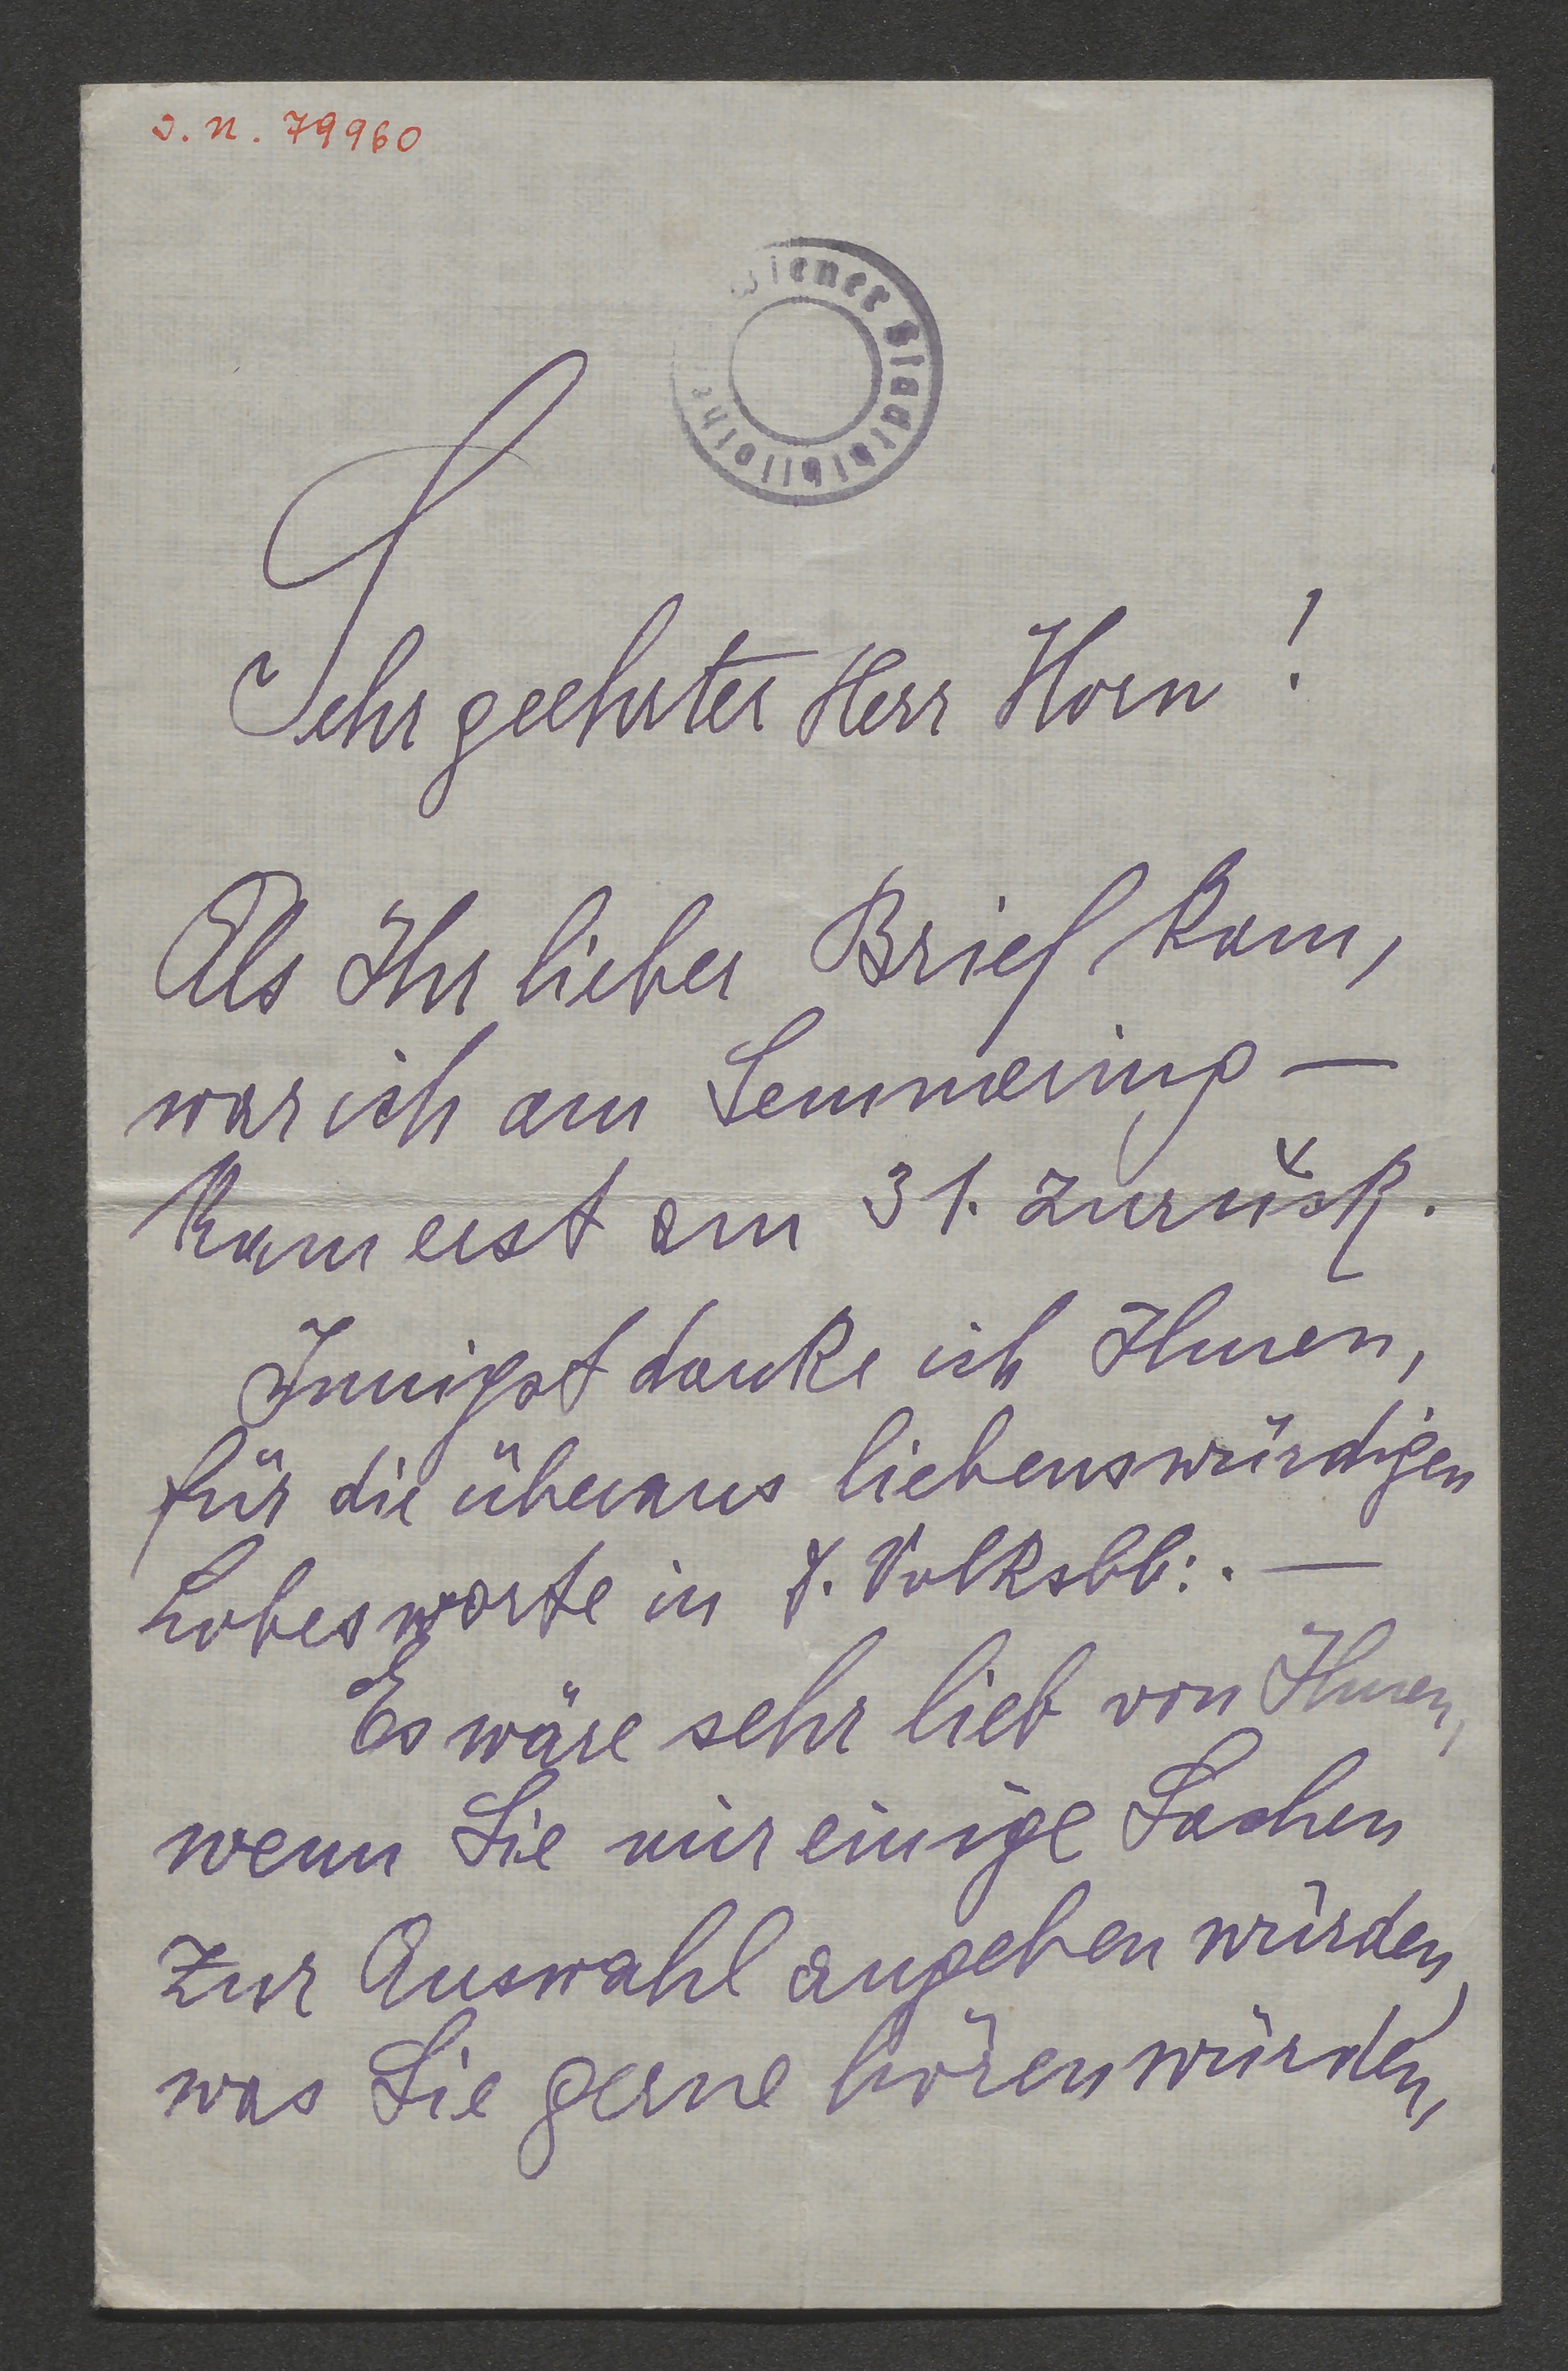 J. N. 79960
Wiener Stadtbibliothek
Sehr geehrter Herr Horn!
Als Ihr lieber Brief kam,
war ich am Semmering —
kam erst am 31. zurück.
Innigst danke ich Ihnen,
für die überaus liebenswürdigen
Lobesworte in Volksbl:. —
Es wäre sehr lieb von Ihnen,
wenn Sie mir einige Sachen
zur Auswahl angeben würden,
was Sie gerne hören würden,